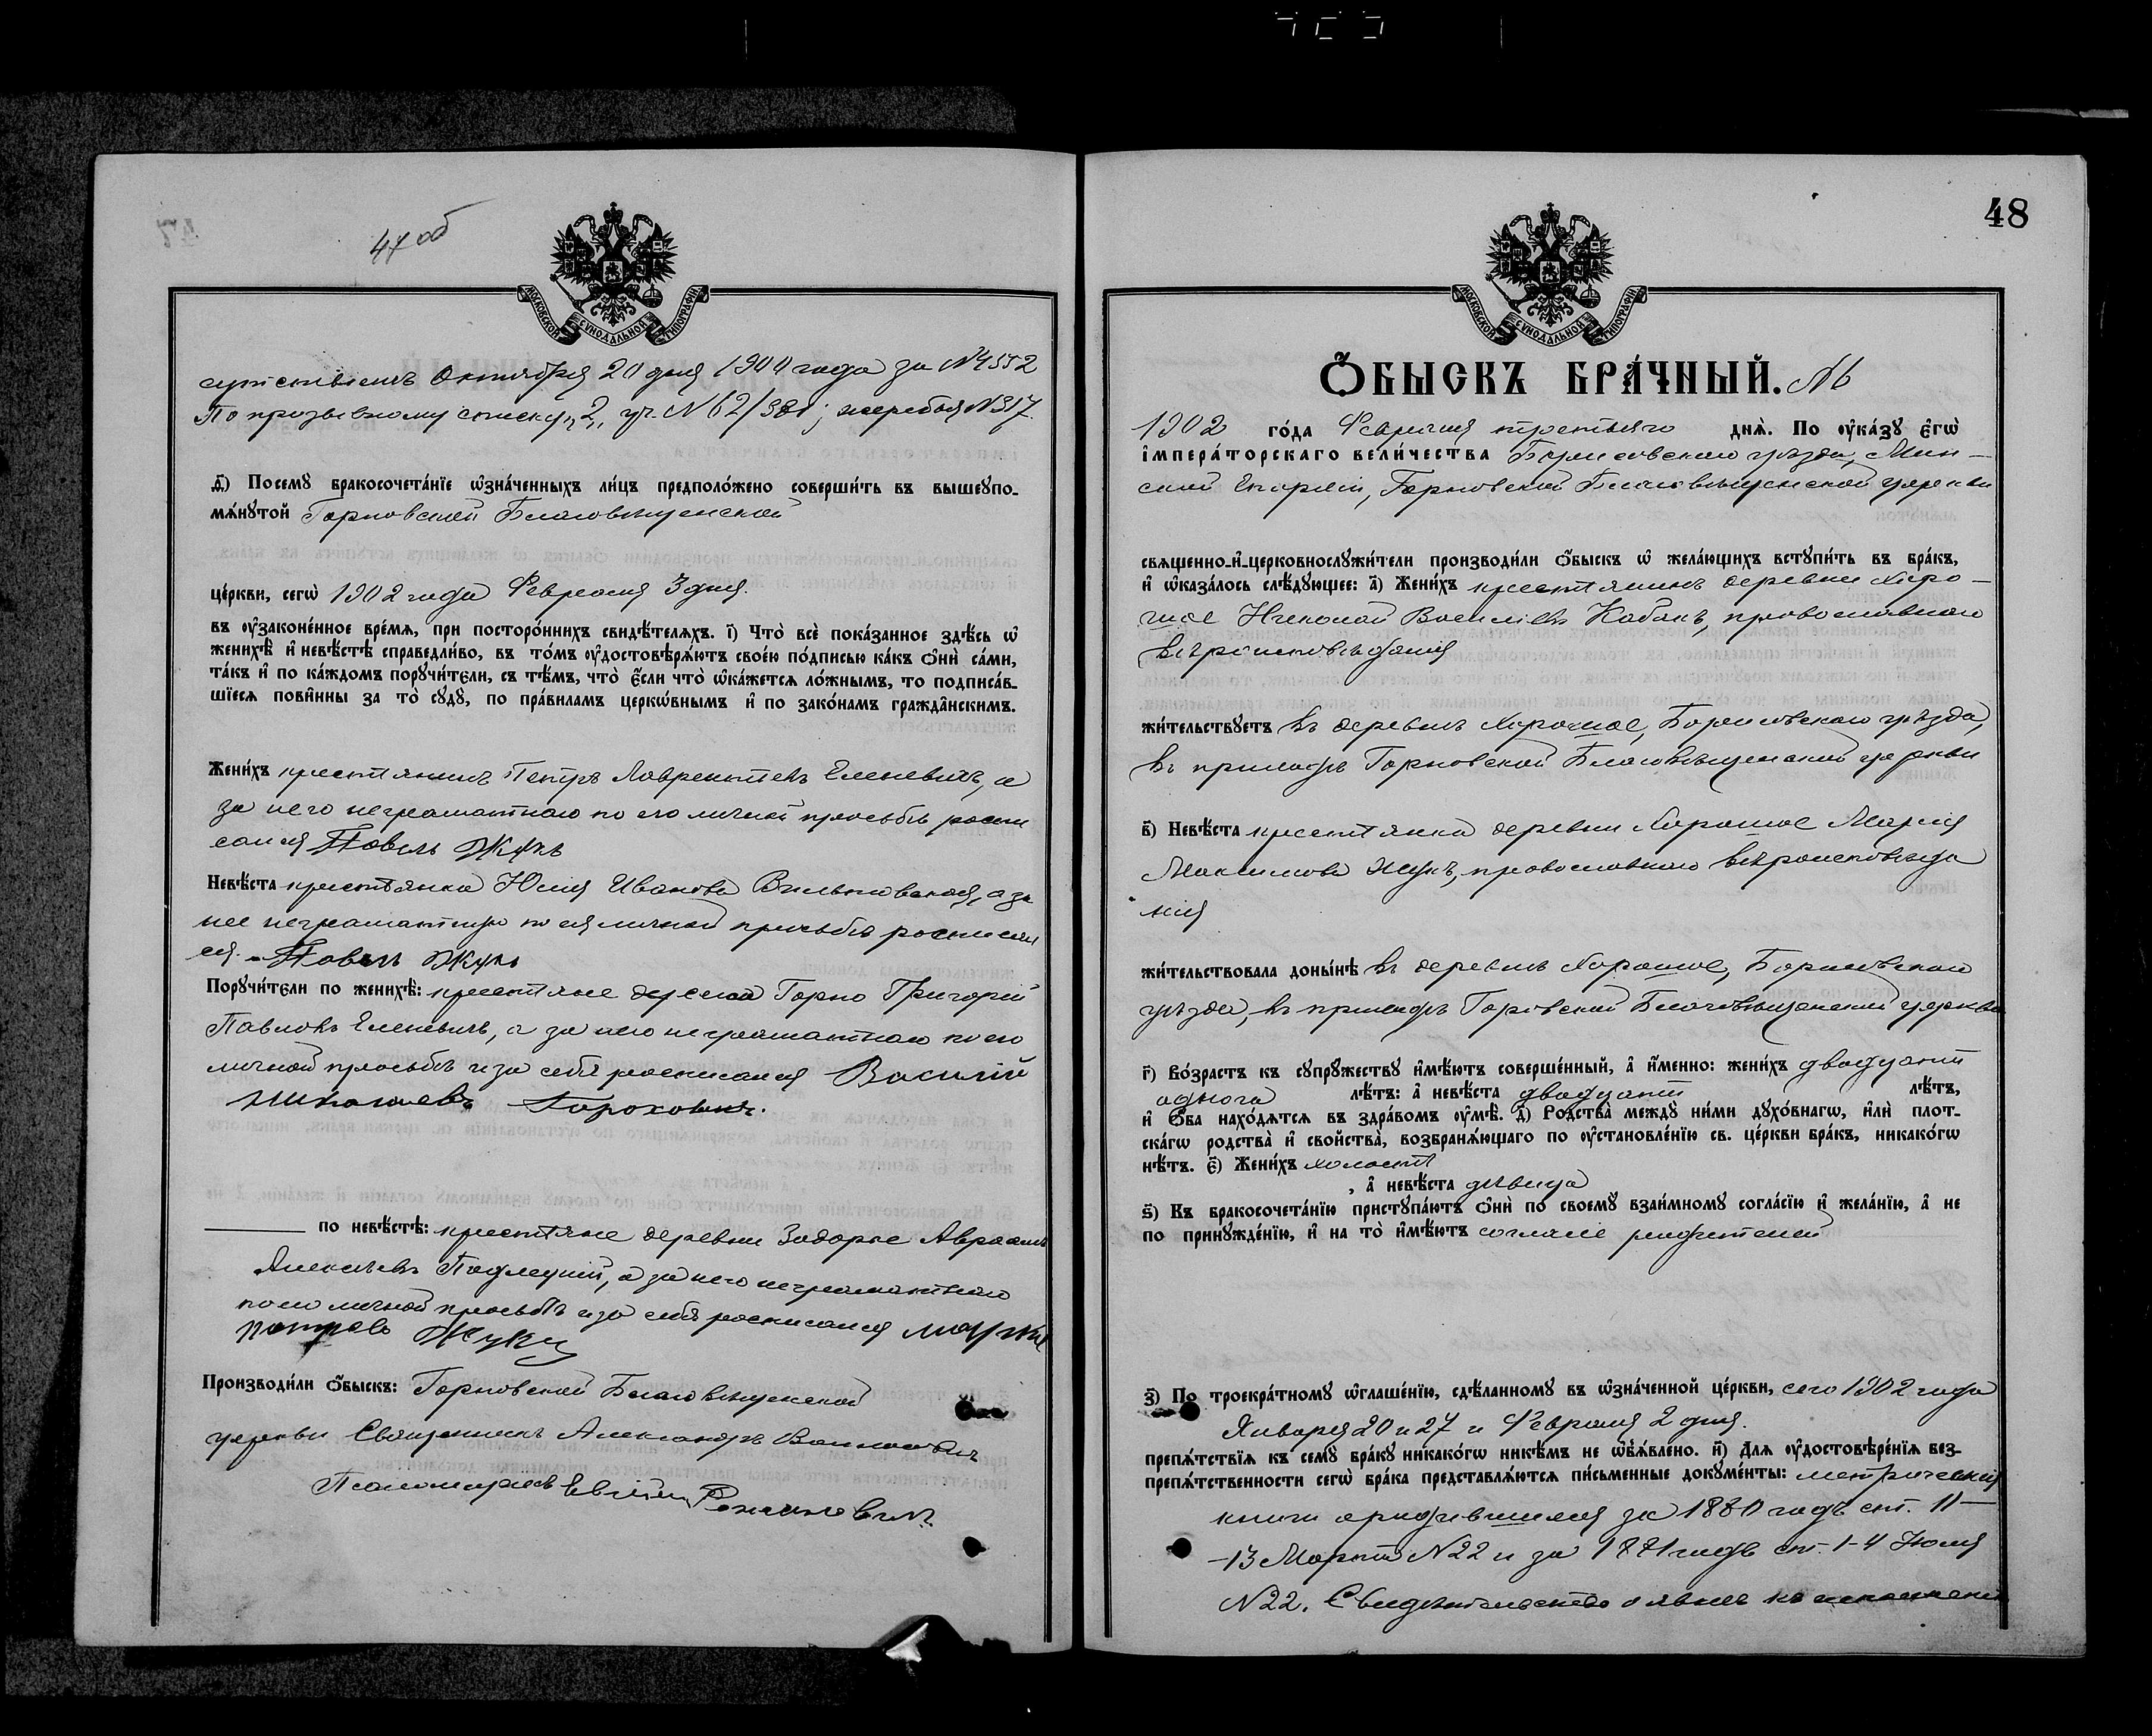 47 об
МОСКОВСКОЙ СУНОДАЛЬНОЙ ТИПОГРАФІИ
Октября 20 дня 1900 года за №4552
По призывному списку 2, уч. №62/381; жеребья №317.
д҃) Посемꙋ бракосочета́нїе ѡ҆зна́ченныхъ ли́цъ предполо́жено соверши́ть въ вышеꙋпо-
мѧ́нꙋтой Горновской Благовѣщенской
це́ркви, сегѡ̀ 1902 года Февраля 3 дня.
въ ᲂу҆законе́нное вре́мѧ, при посторо́ннихъ свидѣ́телѧхъ. і҃) Что̀ всѐ пока́занное здѣ́сь ѡ҆
женихѣ̀ и҆ невѣ́стѣ справедли́во, въ то́мъ ᲂу҆достовѣрѧ́ютъ свое́ю по́дписью ка́къ ѻ҆нѝ са́ми,
та́къ и҆ по ка́ждомъ порꙋчи́тели, съ тѣ́мъ, что̀ є҆́сли что̀ ѡ҆ка́жетсѧ ло́жнымъ, то подписа́в-
шїесѧ пови́нны за то̀ сꙋдꙋ̀, по пра́виламъ церко́внымъ и҆ по зако́намъ гражда́нскимъ.
Жени́хъ крестьянинъ Петръ Лаврентіевъ Еленевичъ, а
за него неграмотнаго по его личной просьбѣ роспи
сался Павелъ Жукъ
Невѣ́ста крестьянка Юлія Иванова Вильковская, а за
нее неграмотную по ея личной просьбѣ росписал
ся Павелъ Жукъ
Порꙋчи́тели по женихѣ̀: крестьяне деревни Горно Григорій
Павловъ Еленевичъ, а за него неграмотнаго по его
личной просьбѣ и за себя росписался Василій
Николаевъ Гороховикъ.
по невѣ́стѣ: крестьяне деревни Задорье Авраамъ
Алексѣевъ Подлецкій, а за него неграмотнаго
по его личной просьбѣ и за себя росписался
Петровъ Жукъ
Производи́ли ѻ҆́быскъ: Горновской Благовѣщенской
церкви Священникъ Александръ
Псаломщикъ Евѳимій
48
МОСКОВСКОЙ СУНОДАЛЬНОЙ ТИПОГРАФІИ
Ѻ҆́БЫСКЪ БРА́ЧНЫЙ. №6
1902 го́да Февраля третьяго днѧ̀. По ᲂу҆ка́зꙋ є҆гѡ̀
і҆мпера́торскаго вели́чества Борисовскаго уѣзда, Мин-
ской Епархіи, Горновской Благовѣщенской церкви
свѧщенно-и҆-церковнослꙋжи́тели производи́ли ѻ҆́быскъ ѡ҆ жела́ющихъ встꙋпи́ть въ бра́къ,
и҆ ѡ҆каза́лось слѣ́дꙋющее: а҃) Жени́хъ крестьянинъ деревни Хоро-
шое Николай Василіевъ Кабакъ, православнаго
вѣроисповѣданія
жи́тельствꙋетъ въ деревнѣ Хорошое, Борисовскаго уѣзда,
въ приходѣ Горновской Благовѣщенской церкви
в҃) Невѣ́ста крестьянка деревни Хорошое Марія
Максимова Жукъ, православнаго вѣроисповѣда
нія
жи́тельствовала доны́нѣ въ деревнѣ Хорошое, Борисовскаго
уѣзда, въ приходѣ Горновской Благовѣщенской церкви
г҃) Во́зрастъ къ сꙋпрꙋ́жествꙋ и҆мѣ́ютъ соверше́нный, а҆ и҆́менно: жени́хъ двадцати
одного лѣ́тъ: а҆ невѣ́ста двадцати лѣ́тъ,
и҆ ѻ҆́ба нахо́дѧтсѧ въ здра́вомъ ᲂу҆мѣ̀. д҃) Родства̀ междꙋ̀ ни́ми дꙋхо́внагѡ, и҆лѝ плот-
ска́гѡ родства̀ и҆ свойства̀, возбранѧ́ющаго по ᲂу҆становле́нїю св. це́ркви бра́къ, никако́гѡ
нѣ́тъ. є҃) Жени́хъ холостъ
, а҆ невѣ́ста дѣвица
ѕ҃) Къ бракосочета́нїю пристꙋпа́ютъ ѻ҆нѝ по своемꙋ̀ взаи́мномꙋ согла́сїю и҆ жела́нїю, а҆ не
по принꙋжде́нїю, и҆ на то̀ и҆мѣ́ютъ согласіе родителей
з҃) По троекра́тномꙋ ѡ҆глаше́нїю, сдѣ́ланномꙋ въ ѡ҆зна́ченной це́ркви, сего 1902 года
Января 20 и 27 и Февраля 2 дня.
препѧ́тствїѧ къ семꙋ̀ бра́кꙋ никако́гѡ никѣ́мъ не ѡ҆б̾ѧ́влено. и҃) Длѧ ᲂу҆достовѣре́нїѧ без-
препѧ́тственности сегѡ̀ бра́ка представлѧ́ютсѧ пи́сьменные докꙋме́нты: метрическія
книги о родившихся за 1880 годъ ст. 11-
-13 Марта №22 и за 1881 годъ ст. 1-4 Іюля
№22. Свидѣтельство о явкѣ къ исполненію